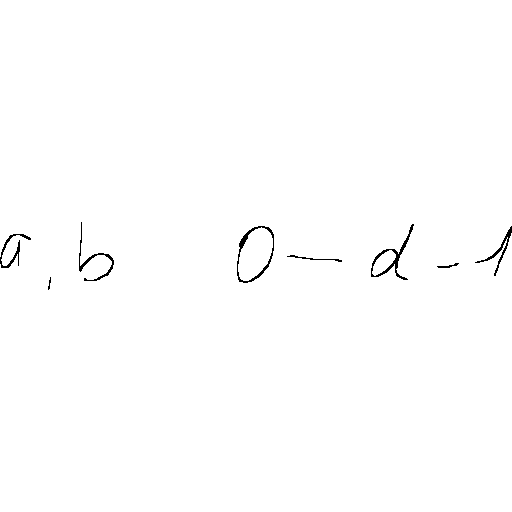 a, b 0 — d - 1